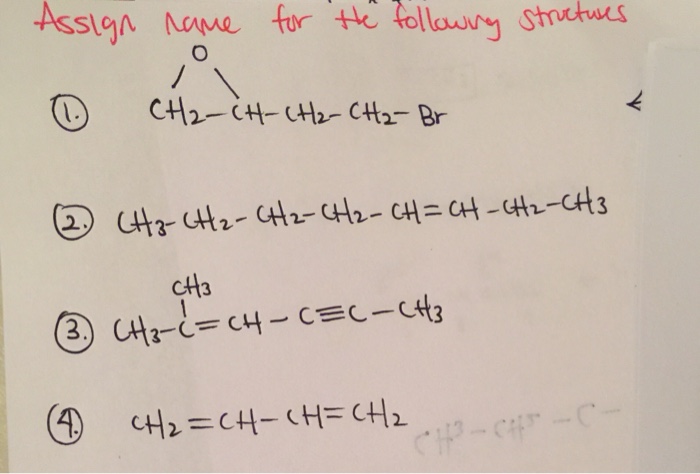 Assign name for the following structures
O
1. CH2-CH-CH2-CH2-Br
2. CH3-CH2-CH2-CH2-CH=CH-CH2-CH3
CH3
3. CH3-C=CH-C≡C-CH3
4. CH2=CH-CH=CH2